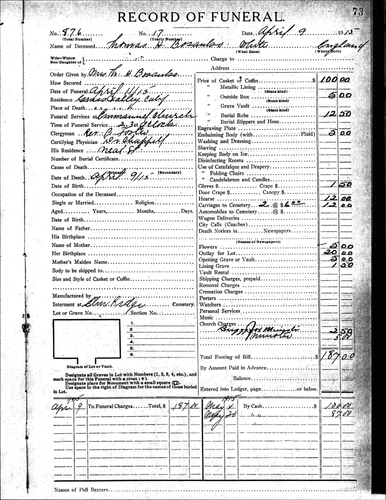 RECORD OF FUNERAL.
73
No. 876 No. 17 Date, April 9 1915
(Total Number) (Yearly Number)
Name of Deceased Thomas H Bosanko White England
(What Race) (Where Born)
Wife-Widow
Son-Daughter of
Charge to
Address
Order Given by Mrs. T. H Bosanko
How Secured
Date of Funeral April 11/15
Residence Grass Valley Calif
Place of Death
Funeral Services Emmanuel Church
Time of Funeral Service 2.30 o'clock
Clergyman Rev.
Certifying Physician
His Residence
Number of Burial Certificate
Cause of Death
Date of Death April 9/15
Date of Birth
Occupation of
Single or Married Religion
Aged, Years, Months, Days.
Date of Birth
Name of Father
His Birthplace
Name of Mother
Her Birthplace
Mother's Maiden Name
Body to be shipped to
Size and Style of Casket or Coffin
Manufactured by
Interment at Elm Ridge Cemetery.
Lot or Grave No. Section No.
1
2
3
4
5
6
Diagram of Lot or Vault.
Designate all Graves in Lot with Numbers (1, 2, 3, 4, etc.), and mark space for this Funeral with a cross (+)
Designate place for Monument with a small square
Use space in the right of Diagram for the names of those buried in Lot.
Price of Casket or Coffin $ 100 00
" Metallic Lining
(State Kind)
" Outside Box 5 00
" Grave Vault
(State Kind)
" Burial Robe 12 50
(State Kind)
" Burial Slippers and Hose
Engraving Plate
Embalming Body (with Fluid) 5 00
Washing and Dressing
Shaving
Keeping Body on Ice
Disinfecting Rooms
Use of Catafalque and Drapery
" Folding Chairs
" Candelabrum and Candles
Gloves $ Crape $ 1 50
Door Crape Canopy $
Hearse 12 00
Carriages to Cemetery 2 @ $6.00 12 00
Automobiles to Cemetery @ $
Wagon Deliveries
City Calls (Coaches)
Death Notices in Newspapers
(Names of Newspapers)
Flowers 5 00
Outlay for Lot 20 00
Opening Grave or Vault 5 00
Lining Grave 1 50
Vault Rental
Shipping Charges, prepaid
Removal Charges
Cremation Charges
Porters
Watchers
Personal Services
Music
Church Charges
2 50
5 00
Total Footing of Bill $ 187.00
By Amount Paid in Advance
Balance
Entered into Ledger, page or below.
1915
Apr 9 To Funeral Charges, Total, $ 187.00
1915
May 4 By Cash 100 00
20 " " 87.00
Names of Pall Bearers